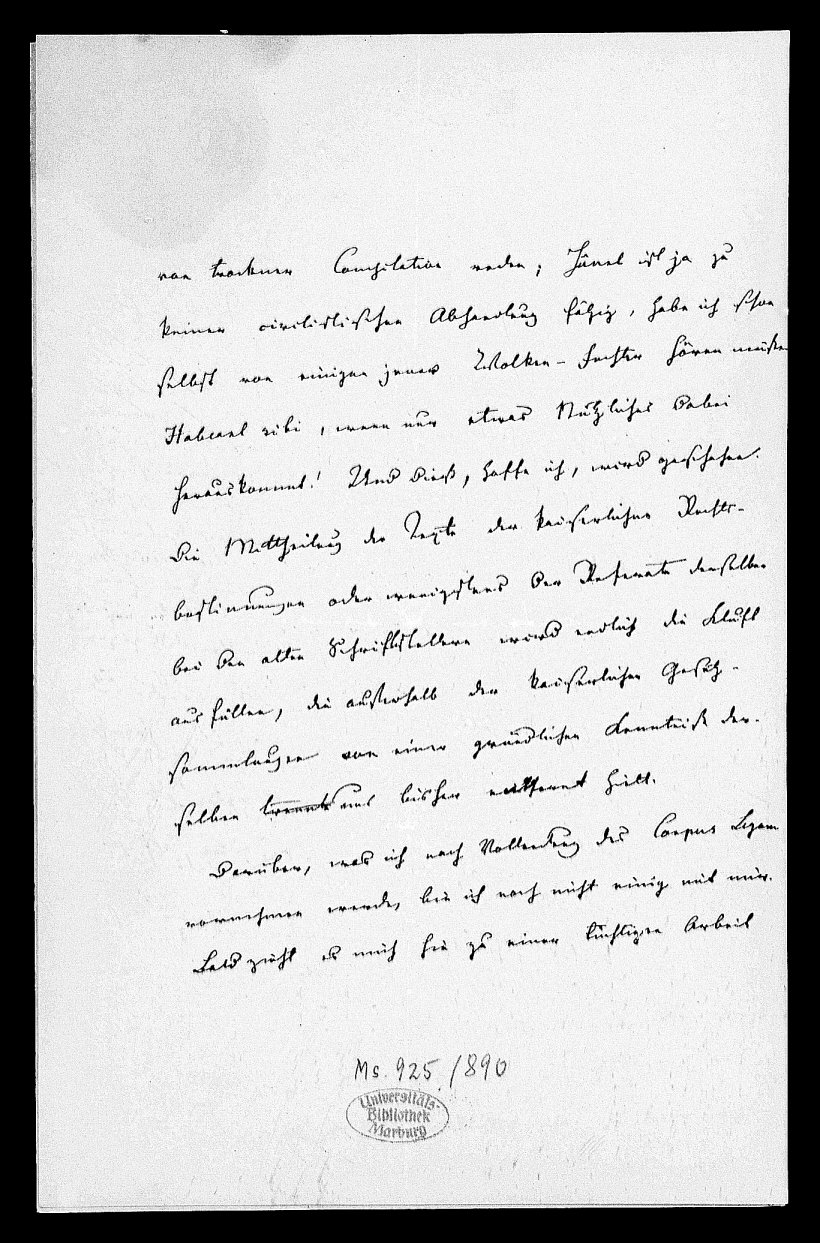 von trockener Compilation reden; Hänel ist ja zu
keiner civilistischen Abhandlung fähig, habe ich schon
selbst von einigen jener Wolken-Fechter hören müssen
Habeant sibi, wenn nur etwas Nützliches dabei
herauskommt! Und dieß, hoffe ich, wird geschehen.
Die Mittheilung der Texte der kaiserlichen Rechts-
bestimmungen oder wenigstens der Referate derselben
bei den alten Schriftstellern wird endlich die Kluft
ausfüllen, die außerhalb der kaiserlichen Gesetz-
sammlungen von einer gründlichen Kenntniß der-
selben trennte uns bisher entfernt hielt.
Darüber, was ich nach Vollendung des Corpus Legum
vornehmen werde, bin ich noch nicht einig mit mir.
Bald zieht es mich hin zu einer tüchtigen Arbeit
Ms. 925/890
Universitäts-
Bibliothek
Marburg